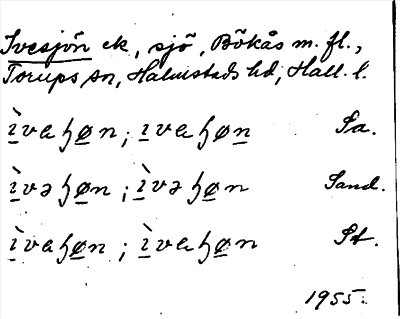 Ivesjön ek, sjö, Bökås m. fl.,
Torups sn, Halmstads hd, Hall. l.
ìvaɧøn; ìvaɧøn Sa.
ìvəɧøn; ìvəɧøn Sand.
ìvaɧøn; ìvaɧøn St.
1955.